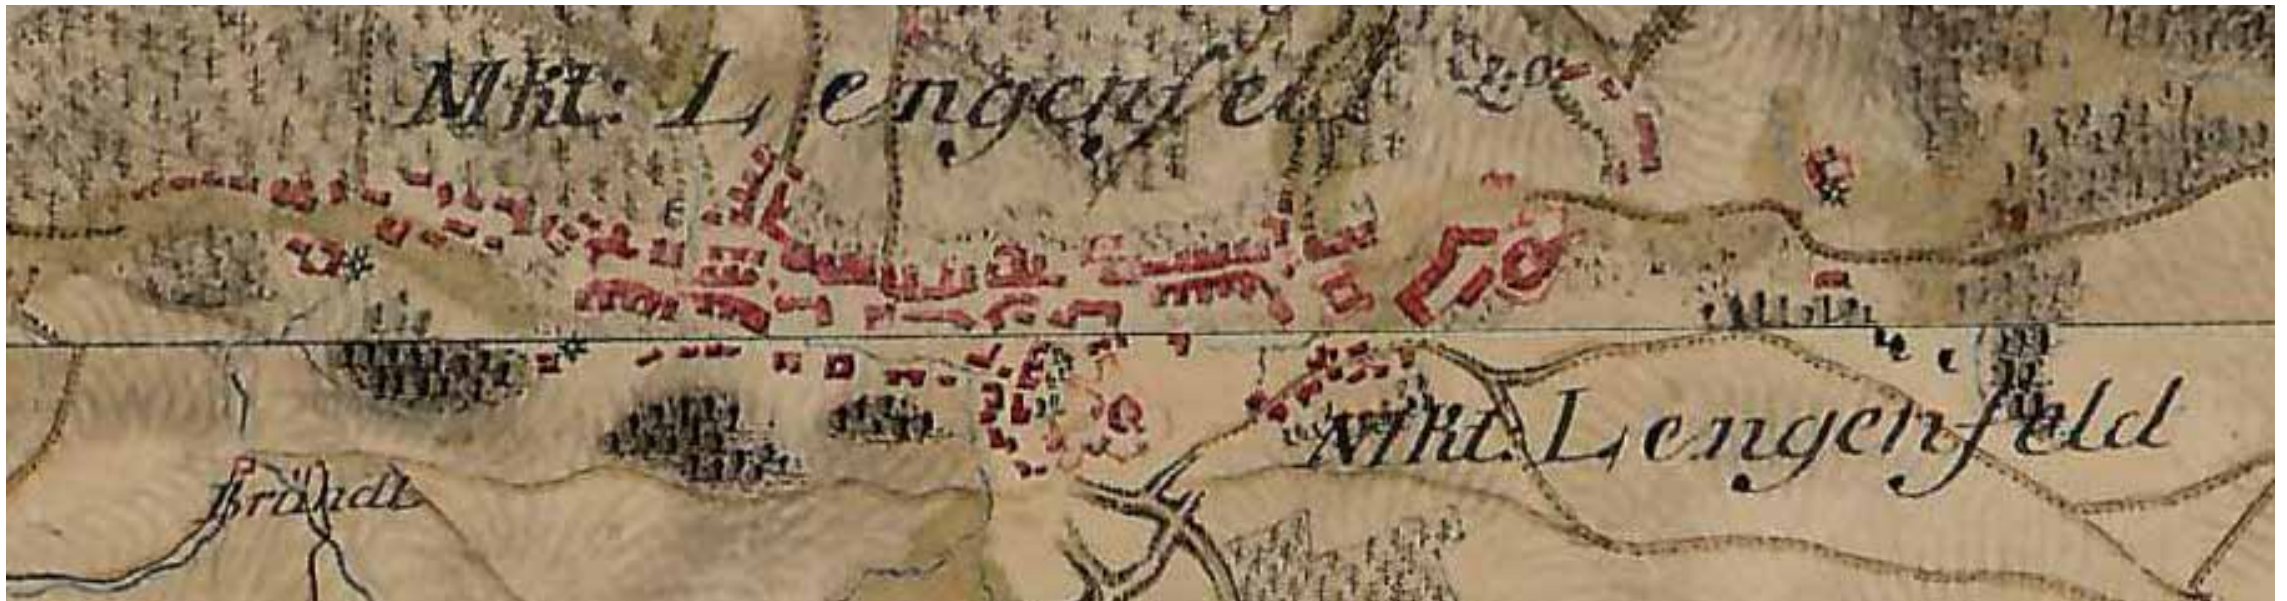 Mkt: Lengenfeld
Z. O.
Mkt. Lengenfeld
Brändt